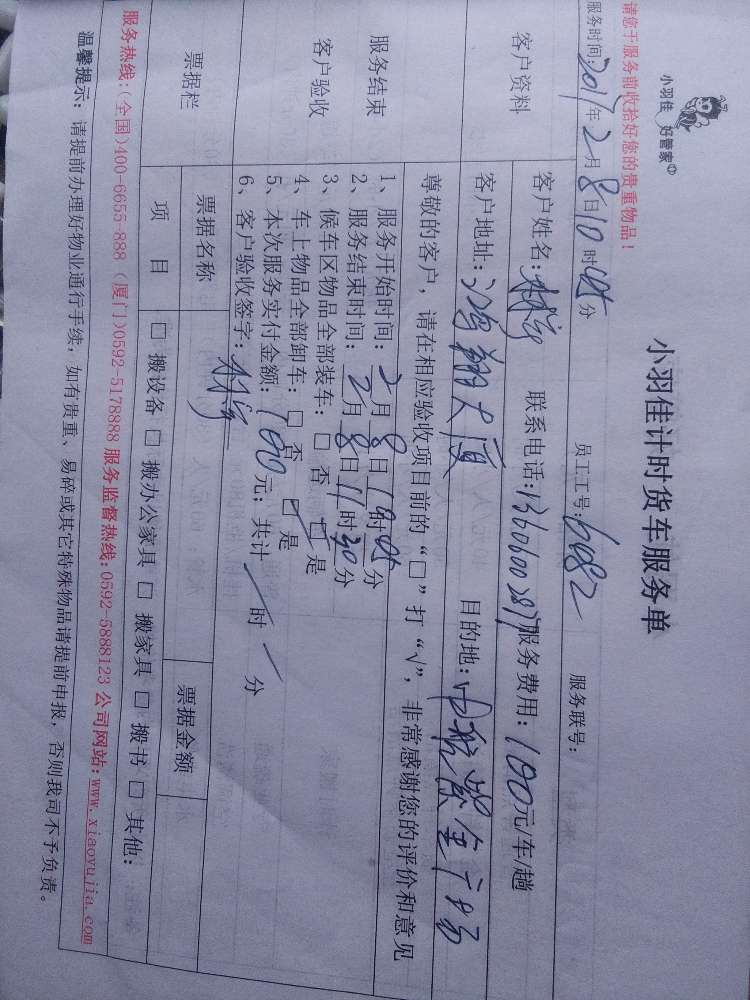 小羽佳 好管家
小羽佳计时货车服务单
请您于服务前收拾好您的贵重物品！
服务时间：2017年2月8日10时45分 员工工号：6082 服务联号：
客户资料
客户姓名： 联系电话： 服务费用：180元/车/趟
客户地址：鸿翔大厦 目的地：
尊敬的客户，请在相应验收项目前的“□”打“√”，非常感谢您的评价和意见
服务结束
客户验收
1、服务开始时间：2月8日 时45分
2、服务结束时间：2月8日11时30分
3、候车区物品全部装车：□ 否 □ 是
4、车上物品全部卸车：□ 否 □ 是
5、本次服务实付金额：180元；共计 / 时 / 分
6、客户验收签字：
票据栏
票据名称 票据金额
项 目 □ 搬设备 □ 搬办公家具 □ 搬家具 □ 搬书 □ 其他：
服务热线：(全国)400-6655-888 (厦门)0592-5178888 服务监督热线：0592-5888123 公司网站：www.xiaoyujia.com
温馨提示：请提前办理好物业通行手续，如有贵重、易碎或其它特殊物品请提前申报，否则我司不予负责。